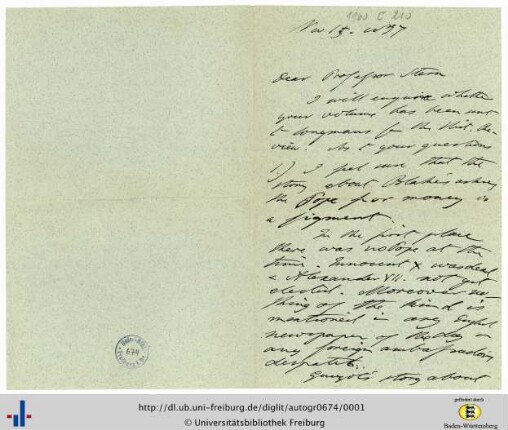 1900 C 210
Nov 15. 1897
Dear Professor Stern
I will enquire whether
your volume has been sent
to Longmans for the Hist. Re-
view. As to your questions
1.) I feel sure that the
story about Blake's asking
the Pope for money is
a figment.
In the first place
there was no Pope at the
time. Innocent X was dead
& Alexander VII. not yet
elected. Moreover no-
thing of the kind is
mentioned in any Engl.
newspaper of the day or
any foreign ambassadors
despatch.
Guizot's story about
674
http://dl.ub.uni-freiburg.de/diglit/autogr0674/0001
© Universitätsbibliothek Freiburg
gefördert durch
Baden-Württemberg